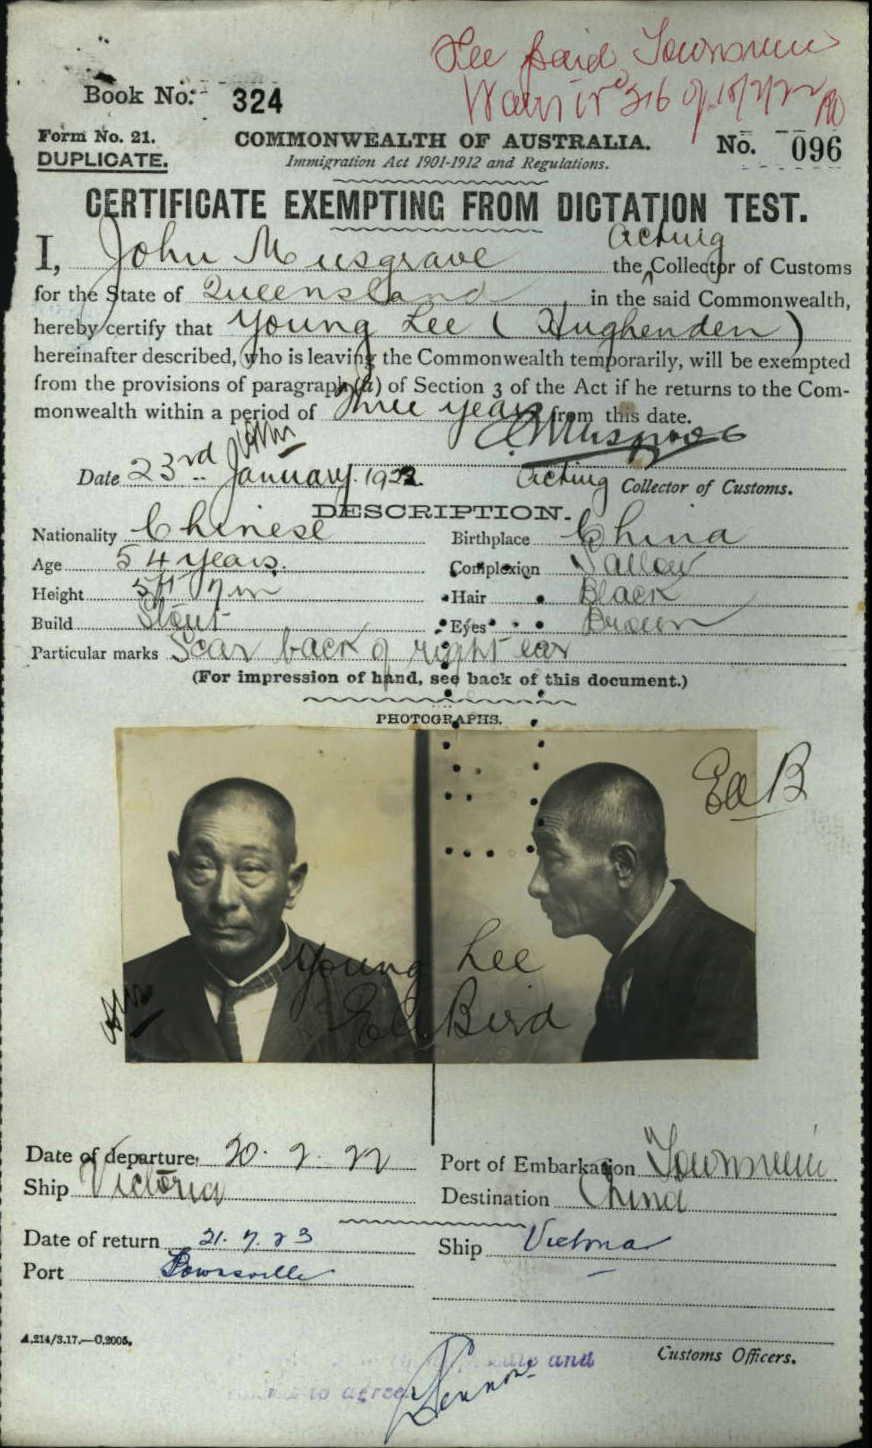 Fee paid Townsville
Book No. 324
Form No. 21.
COMMONWEALTH OF AUSTRALIA.
No. 096
DUPLICATE.
Immigration Act 1901-1912 and Regulations.
CERTIFICATE EXEMPTING FROM DICTATION TEST.
acting
I, John Musgrave the Collector of Customs
for the State of Queensland in the said Commonwealth,
hereby certify that Young Lee (Hughenden)
hereinafter described, who is leaving the Commonwealth temporarily, will be exempted
from the provisions of paragraph (a) of Section 3 of the Act if he returns to the Com-
monwealth within a period of Three years from this date.
Date 23rd January. 1922.
Acting Collector of Customs.
DESCRIPTION.
Nationality Chinese Birthplace China
Age 54 years. Complexion Sallow
Height 5ft 7in Hair Black
Build Stout Eyes Brown
Particular marks Scar back of right ear
(For impression of hand, see back of this document.)
PHOTOGRAPHS.
Young Lee
Bird
Date of departure 20. 2. 22 Port of Embarkation Townsville
Ship Victoria Destination China
Date of return 21. 7. 23 Ship Victoria
Port Townsville
A.214/3.17.—C.2005.
Customs Officers.
and
to agree